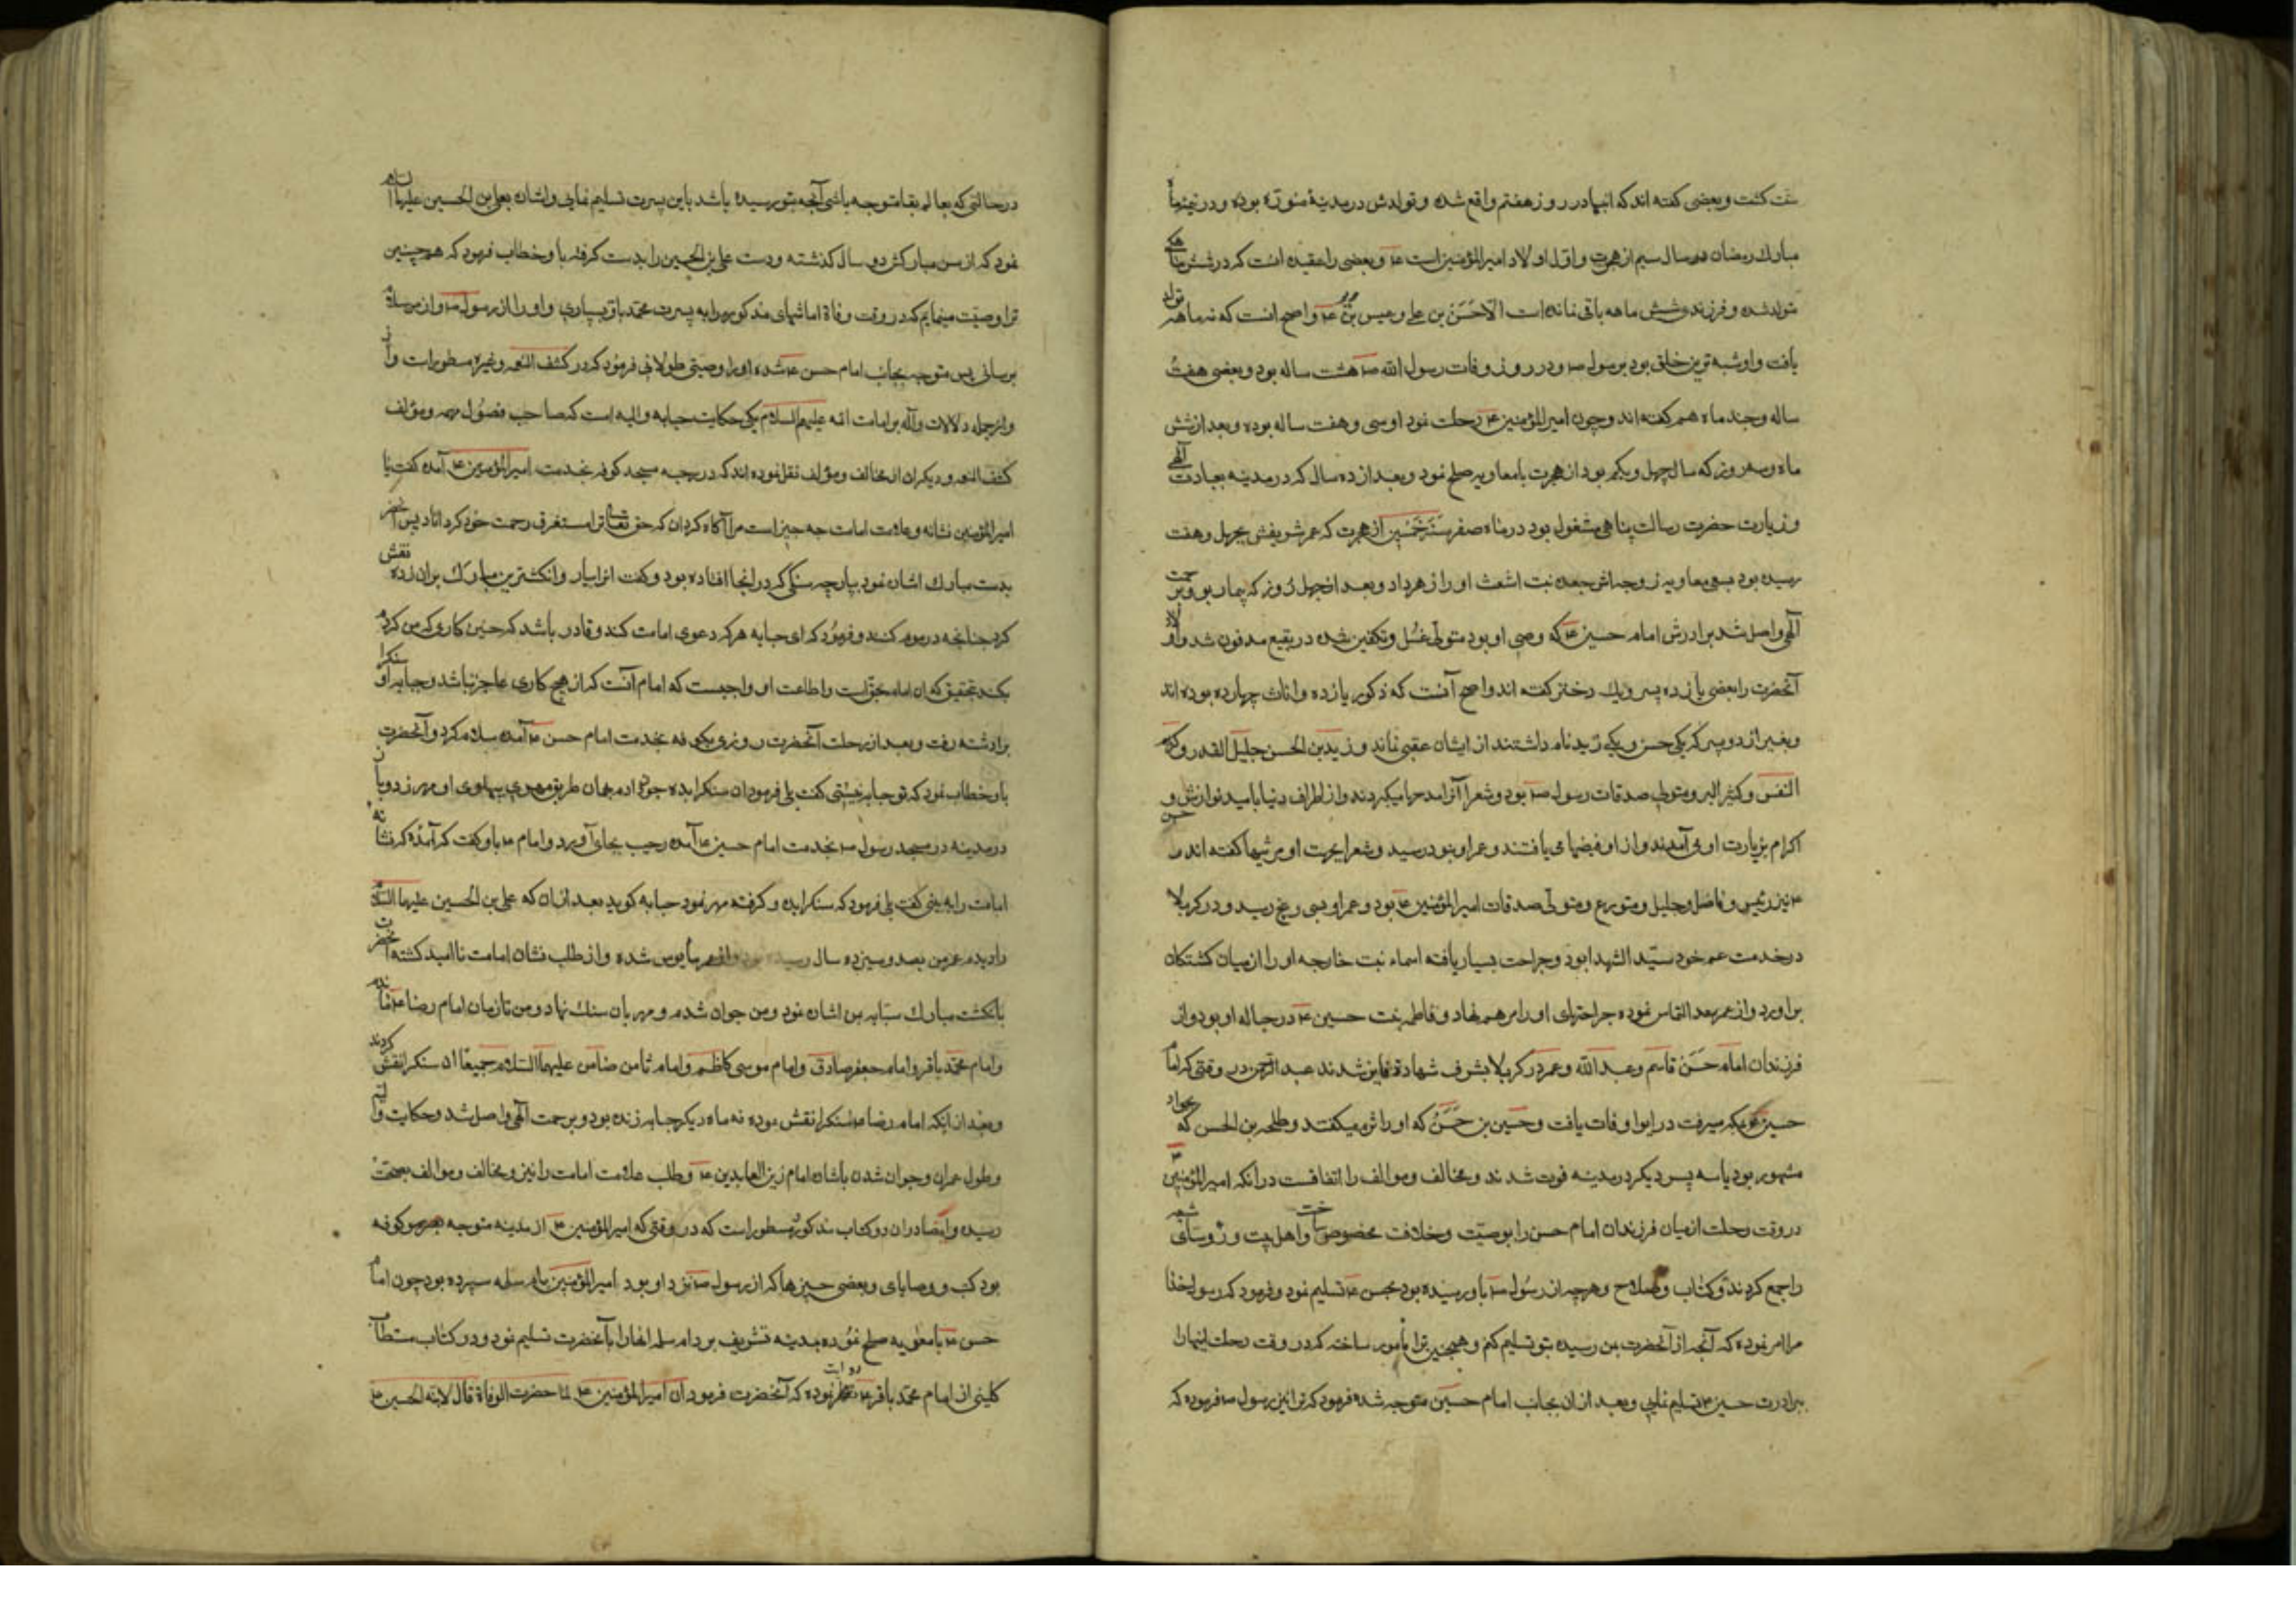 سنت کشت و بعضی کفته اند که اینها در روز هفتم واقع شده و تولدش در مدینهٔ منوره بوده و در نیمهٔ ماه
مبارك رمضان در سال سیم از هجرت و اول اولاد امیرالمؤمنین است ع و بعضی را عقیده انست که در شش ماهکی
متولد شده و فرزند شش ماهه باقی نمانده است الا حسن بن علی و عیسی بن ع و اصح انست که نه ماهه تولد
یافت و او شبیه ترین خلق بود برسول ص و در روز وفات رسول الله ص هشت ساله بود و بعضی هفت
ساله و چند ماه هم کفته اند و چون امیرالمؤمنین ع رحلت نمود او سی و هفت ساله بوده و بعد از شش
ماه و سه روز که سال چهل و یکم بود از هجرت با معاویه صلح نمود و بعد از ده سال که در مدینه بعبادت الهی
و زیارت حضرت رسالت پناهی مشغول بود در ماه صفر سنه خمسین از هجرت که عمر شریفش بچهل و هفت
رسیده بود بسعی معاویه زوجه اش جعده بنت اشعث او را زهر داد و بعد از چهل روز که بیمار بود برحمت
الهی واصل شد برادرش امام حسین ع که وصی او بود متولی غسل و تکفین شده در بقیع مدفون شد و اولاد
آنحضرت را بعضی یازده پسر و یك دختر کفته اند و اصح آنست که ذکور یازده و اناث چهارده بوده اند
و بغیر از دو پسر که یکی حسن و یکی زید نام داشتند از ایشان عقبی نماند و زید بن الحسن جلیل القدر و کریم
النفس و کثیر البر و متولی صدقات رسول ص بود و شعرا آنرا مدحها میکردند و از اطراف دنیا بامید نوازش و
اکرام بزیارت او می آمدند و از او فیضها می یافتند و عمر او بنود رسید و شعرا بجهت او مرثیها کفته اند و حسن
ع نیز رئیس و فاضل و جلیل و متورع و متولی صدقات امیرالمؤمنین ع بود و عمر او بسی و پنج رسید و در کربلا
در خدمت عم خود سید الشهدا بود و جراحت بسیار یافته اسماء بنت خارجه او را از میان کشتکان
براورد و از عمر سعد التماس نموده جراحتهای او را مرهم نهاد و فاطمه بنت حسین ع در حباله او بود و از
فرزندان امام حسن قاسم و عبد الله و عمر در کربلا بشرف شهادة فایز شدند عبد الرحمن در وقتی که امام
حسین ع بمکه میرفت در ابوا وفات یافت و حسین بن حسن که او را اثرم میکفتند و طلحه بن الحسن که بجواد
مشهور بود با سه پسر دیکر در مدینه فوت شدند و مخالف و موالف را اتفاقست در انکه امیرالمؤمنین ع
در وقت رحلت از میان فرزندان امام حسن را بوصیت و خلافت مخصوص ساخت و اهل بیت و روسای شیعه
را جمع کردند و کتاب و سلاح و هرچه از رسول ص باو رسیده بود بحسن ع تسلیم نمود و فرمود که رسول خدا
مرا امر نموده که آنچه از آنحضرت بمن رسیده بتو تسلیم کنم و همچنین ترا مأمور ساخته که در وقت رحلت اینها را
ببرادرت حسین ع تسلیم نمایی و بعد از آن بجانب امام حسین متوجه شده فرمود که ترا نیز رسول ص فرموده که
در حالتی که بعالم بقا متوجه باشی آنچه بتو رسیده باشد باین پسرت تسلیم نمایی و اشاره بعلی بن الحسین علیهما السلام
نمود که از سن مبارکش دو سال کذشته و دست علی بن الحسین را بدست کرفته باو خطاب فرمود که همچنین
ترا وصیت مینمایم که در وقت وفاة اماشهای مذکوره را به پسرت محمد باقر بسپاری و او را از رسول ص و از من سلام
برسانی پس متوجه بجانب امام حسن ع شده او را وصیتی طولانی فرمود که در کشف الغمه و غیره مسطور است و
و از جمله دلالات داله بر امامت ائمه علیهم السلام یکی حکایت حبابه والبیه است که صاحب فصول مهمه و مؤلف
کشف الغمه و دیکران از مخالف و مؤالف نقل نموده اند که در رحبه مسجد کوفه بخدمت امیرالمؤمنین ع آمده کفت یا
امیرالمؤمنین نشانه و علامت امامت چه چیز است مرا آکاه کردان که حق تعالی ترا مستغرق رحمت خود کرداناد پس آنحضرت
بدست مبارك اشاره نمود بپارچه سنکی که در انجا افتاده بود و کفت انرا بیار و انکشترین مبارك بران زده نقش
کرد چنانچه در موم کنند و فرمود که ای حبابه هرکه دعوی امامت کند و قادر باشد که چنین کاری که من کردم
بکند بتحقیق که ان امام بحق است و اطاعت او واجبست که امام آنست که از هیچ کاری عاجز نباشد و حبابه سنکرا
برداشته رفت و بعد از رحلت آنحضرت روزی بکوفه بخدمت امام حسن ع آمده سلام کرد و آنحضرت
باو خطاب نمود که تو حبابه نیستی کفت بلی فرمود ان سنکرا بده چون دادم بهمان طریق مهری بپهلوی او مهر زد و باز
در مدینه در مسجد رسول ص بخدمت امام حسین ع آمده رحیب بجای آورد و امام ع باو کفت که آمدهٔ که نشانه
امامت را به بینی کفت بلی فرمود که سنکرا بده و کرفته مهر نمود حبابه کوید بعد از ان که علی بن الحسین علیهما السلام
را دیدم عمر من بصد و سیزده سال رسیده بود و از عمر مأیوس شده و از طلب نشان امامت نا امید کشته آنحضرت
بانکشت مبارك سبابه بمن اشاره نمود و من جوان شدم و مهر بان سنك نهاد و من تا زمان امام رضا ع ماندم
و امام محمد باقر و امام جعفر صادق و امام موسی کاظم و امام ثامن ضامن علیهم السلام جمیعا ان سنکرا نقش کردند
و بعد از انکه امام رضا ع سنکرا نقش نموده نه ماه دیکر حبابه زنده بود و برحمت الهی واصل شد و حکایت والبیه
و طول عمر ان و جوان شدن باشاره امام زین العابدین ع و طلب علامت امامت را نیز و مخالف و موالف بصحت
رسیده و ایضا در ان دو کتاب مذکور مسطور است که در وقتی که امیرالمؤمنین ع از مدینه متوجه کوفه
بود کتب و وصایای و بعضی چیزها که از رسول ص نزد او بود امیرالمؤمنین بام سلمه سپرده بود چون امام
حسن ع با معویه صلح نموده بمدینه تشریف برد ام سلمه انها را بآنحضرت تسلیم نمود و در کتاب مستطاب
کلینی از امام محمد باقر ع روایت نموده که آنحضرت فرمود ان امیرالمؤمنین ع لما حضرت الوفاة قال لابنه الحسین ع